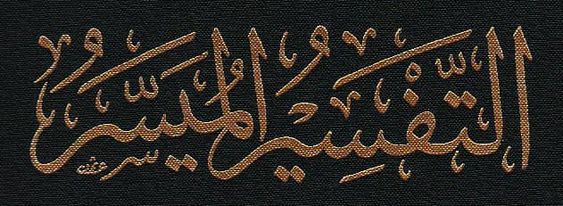 التَّفْسِيرُ المُيَسَّرُ